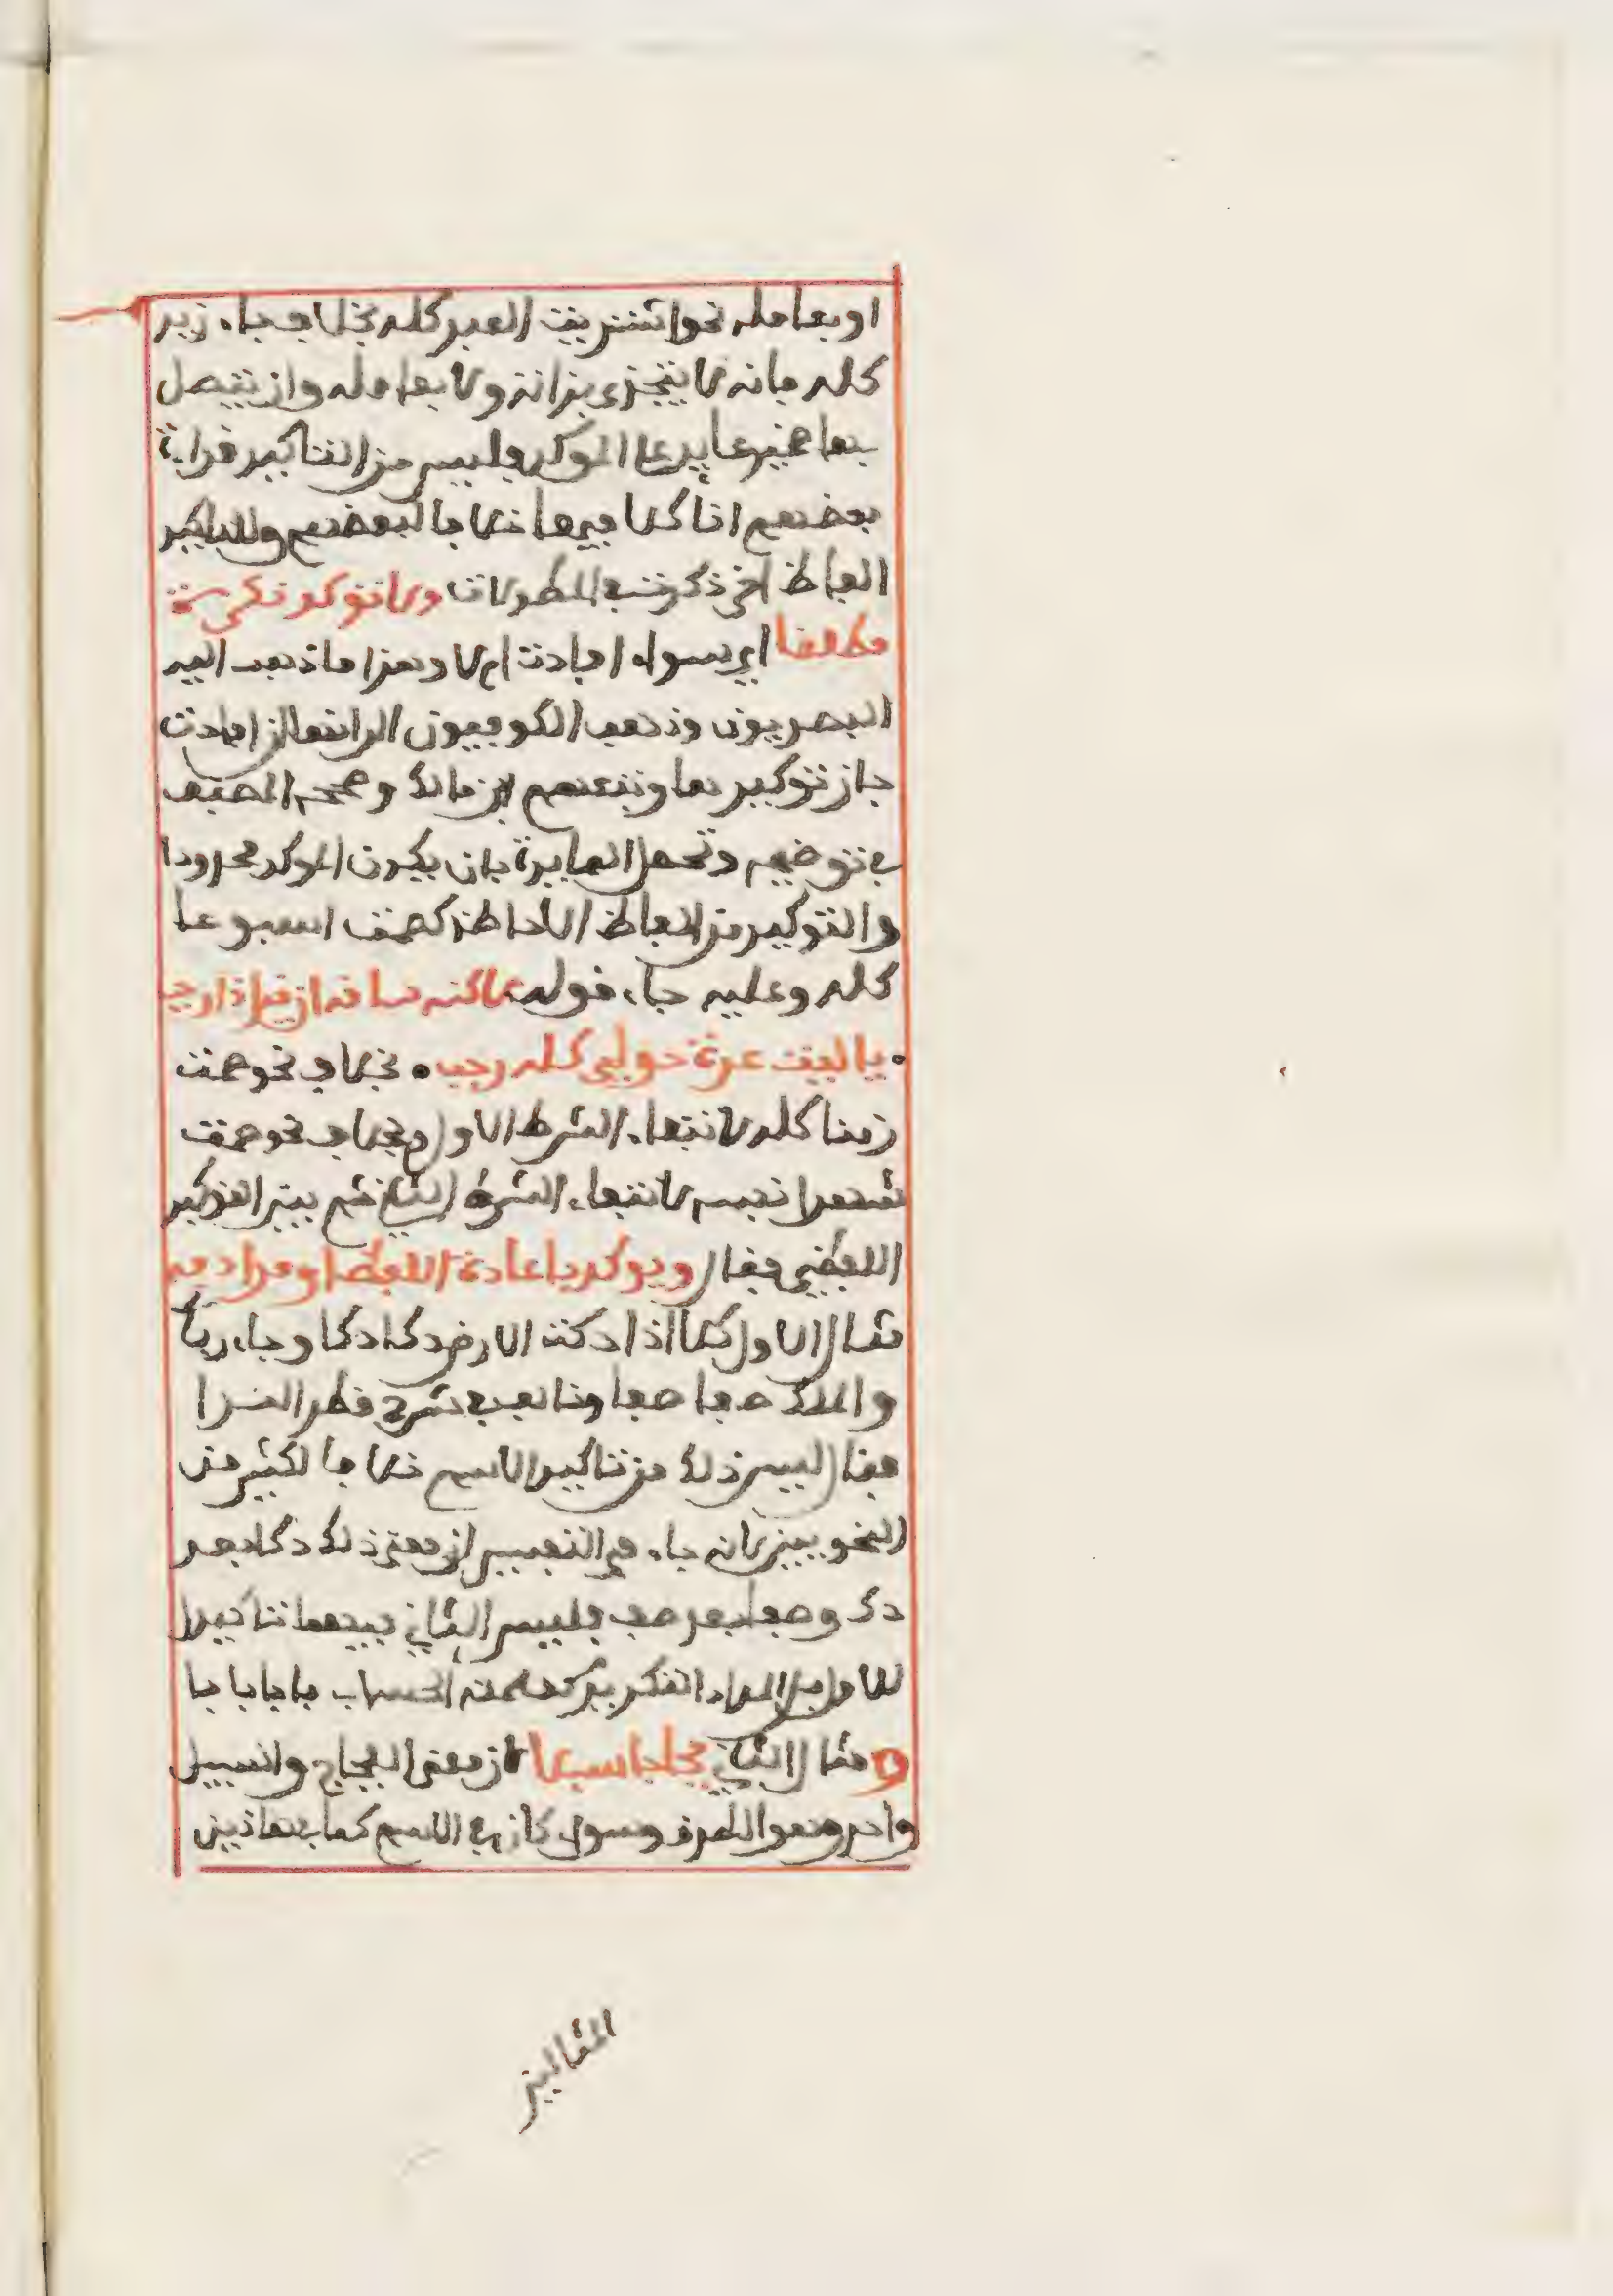 او بعامله نحو اشتريت العبد كله بخلاف جاء زيد
كله فانه لا يتجزى بذاته ولا بعامله وان يتصل
بها ضمير عايد على الموكد فليس من التاكيد قراءة
بعضهم انا كلا فيها خلافا لبعضهم وللتاكيد
الفاظ اخر ذكرت في المطولات ولا توكد نكرة
مطلقا اي سواء افادت ام لا وهذا ما ذهب اليه
البصريون وذهب الكوفيون الى انها ان افادت
جاز توكيدها وتبعهم ابن مالك وصححه المصنف
في توضيحه وتحصل الفايدة بان يكون الموكد محدودا
والتوكيد من الفاظ الاحاطة كصمت اسبوعا
كله وعليه جاء قوله لاكنه شاقه ان قيل ذا رجب
يا ليت عدة حولي كله رجب بخلاف نحو صمت
زمنا كله لانتفاء الشرط الاول وبخلاف نحو صمت
شهرا نفسه لانتفاء الشرط الثاني ثم بين التوكيد
اللفظي فقال ويوكد باعادة اللفظ او مرادفه
مثال الاول كلا اذا دكت الارض دكا دكا وجاء ربك
والملك صفا صفا وتابع في شرح قطر الندا
فقال ليس ذلك من تاكيد الاسم خلافا لكثير من
النحويين لانه جاء في التفسير ان معنى ذلك دكا بعد
دك وصفا بعد صف فليس الثاني فيهما تاكيدا
للاول بل المراد التكرير كعلمته الحساب بابا بابا
ومثال الثاني فجاجا سبلا لان معنى الفجاج والسبيل
واحد وهو الطرق وسواء كان في الاسم كما في هاذين
المثالين